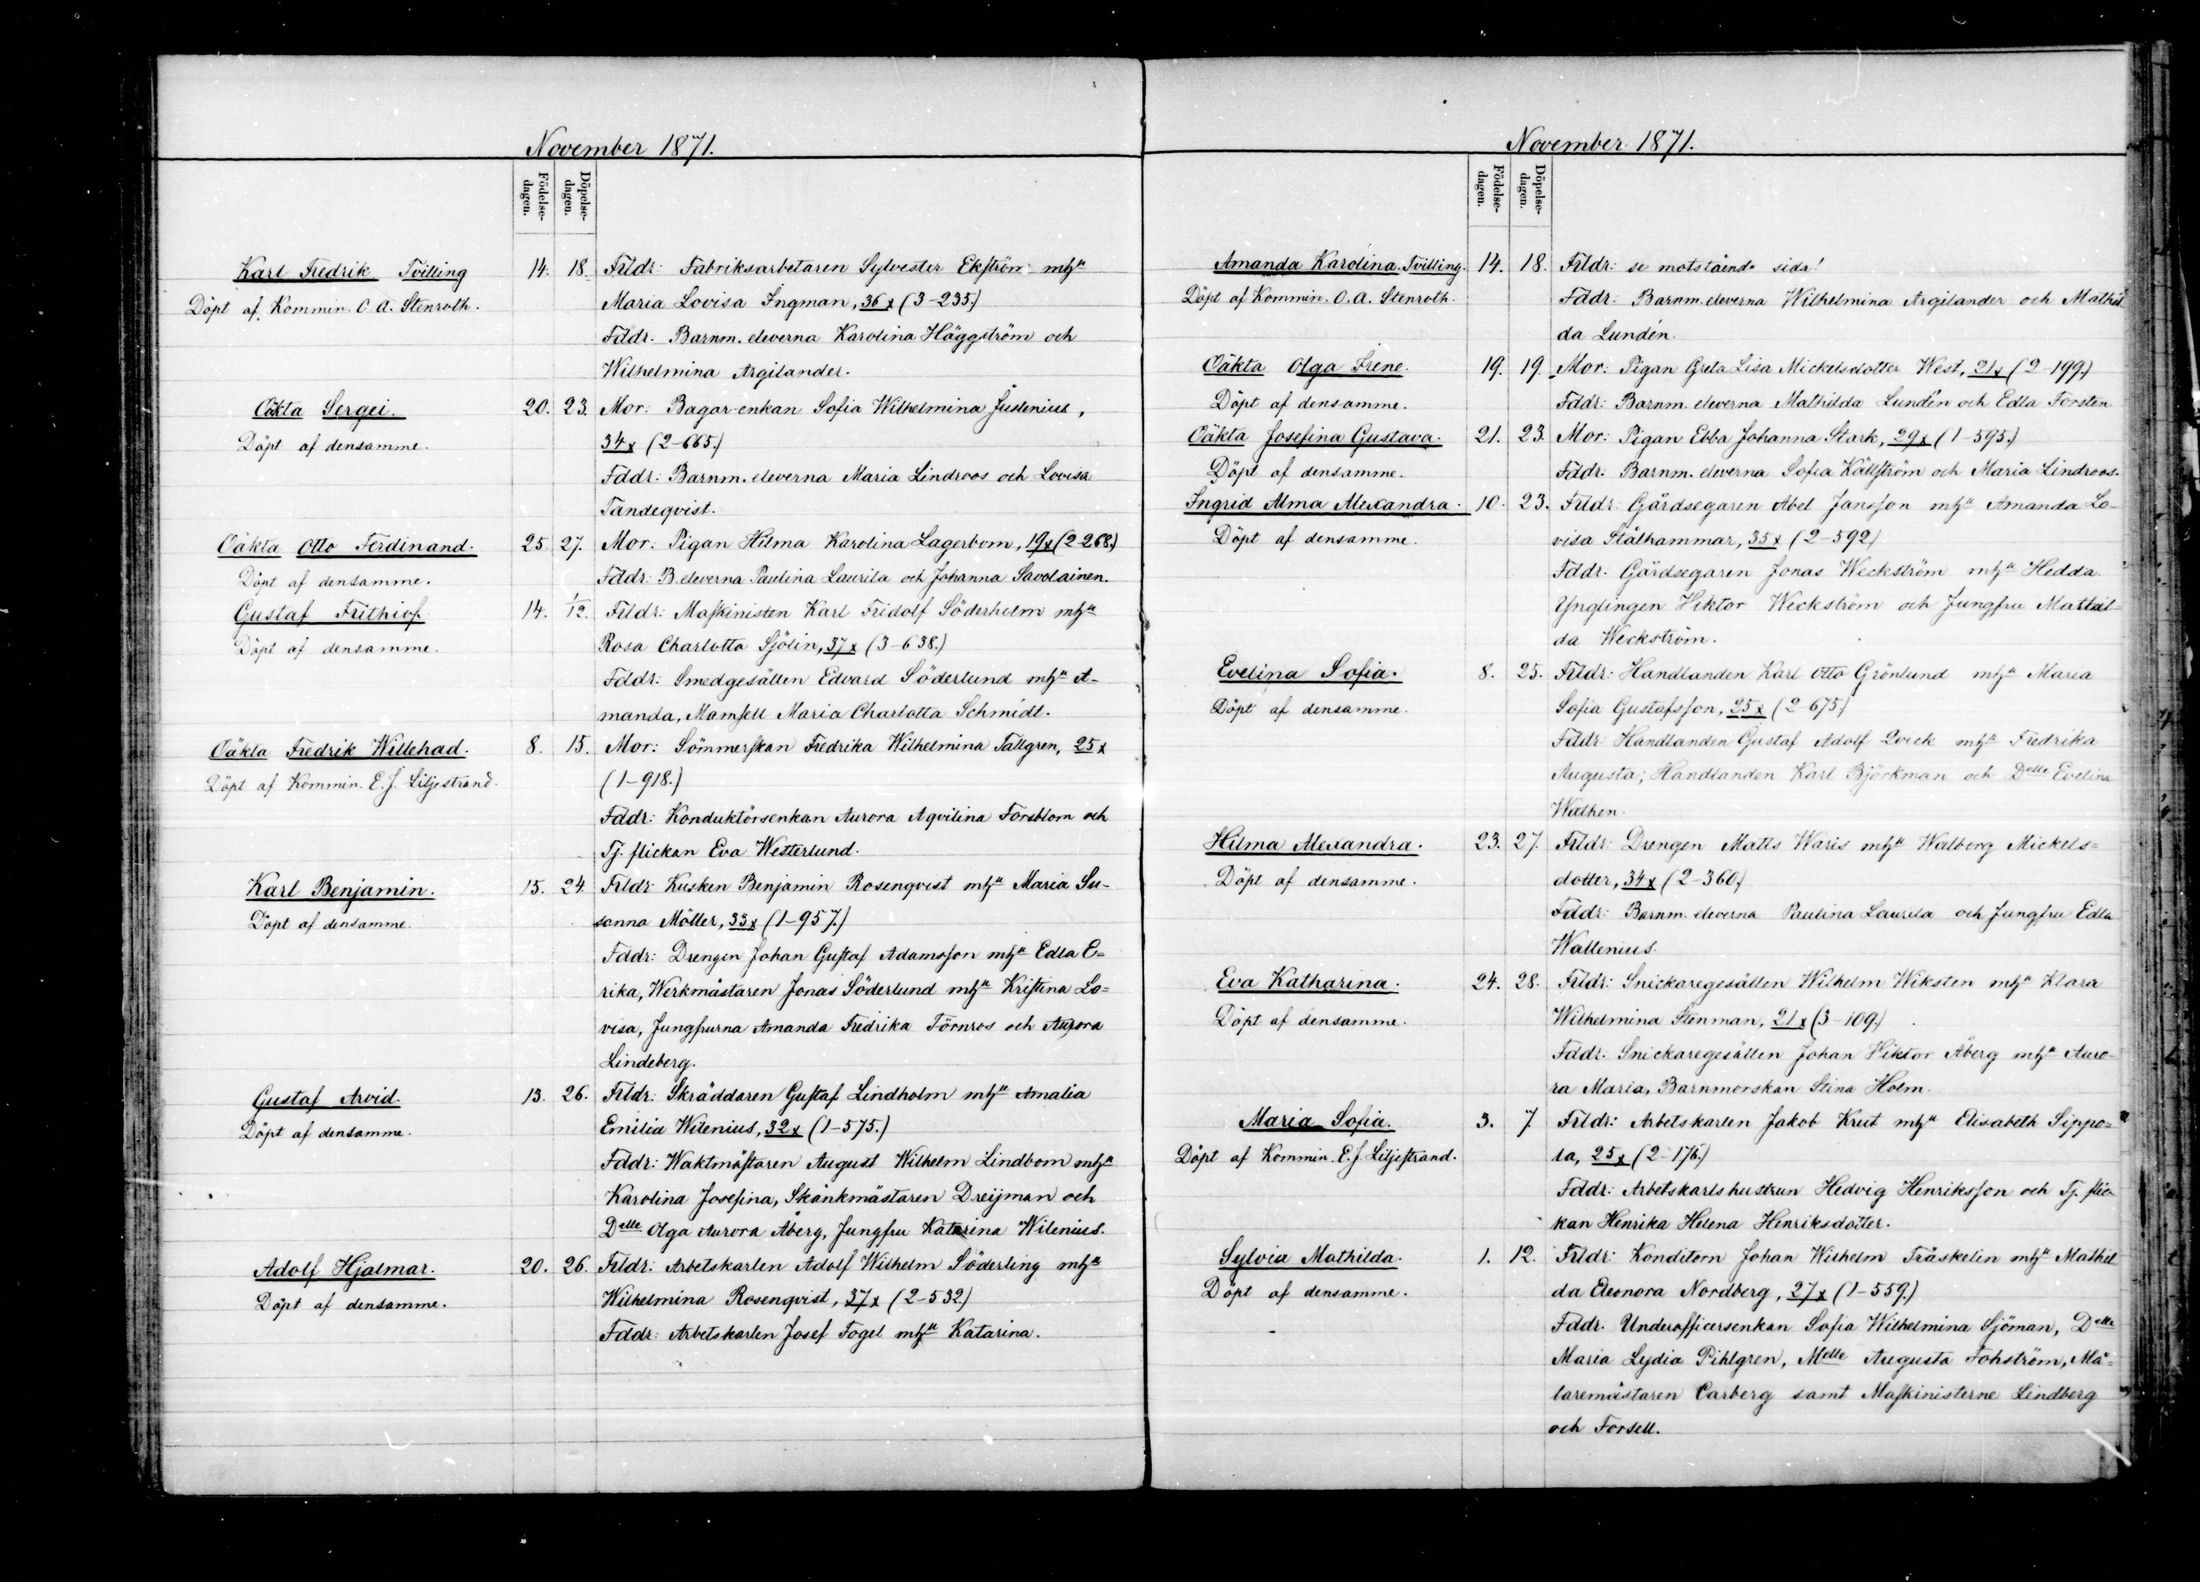 November 1871.
Födelse-dagen.
Döpelse-dagen.
Karl Fredrik Tvilling 14. 18. Frldr: Fabriksarbetaren Sylvester Ekström mhu
Döpt af Kommin. O A. Stenroth. Maria Lovisa Ingman, 36 x (3-235.)
Fddr. Barnm. eleverna Karolina Häggström och
Wilhelmina Argilander.
Oäkta Sergei. 20. 23. Mor: Bagar-enkan Sofia Wilhelmina Juslenius,
Döpt af densamme. 34 x (2-665.)
Fddr: Barnm. eleverna Maria Lindroos och Lovisa
Tandeqvist.
Oäkta Otto Ferdinand. 25. 27. Mor: Pigan Hilma Karolina Lagerbom, 19 x (2-268.)
Döpt af densamme. Fddr: B. eleverna Paulina Laurila och Johanna Savolainen.
Gustaf Frithiof 14. 1/12. Frldr: Maskinisten Karl Fridolf Söderholm mhu
Döpt af densamme. Rosa Charlotta Sjölin, 37 x (3-638.)
Fddr: Smedgesällen Edvard Söderlund mhu A-
manda, Mamsell Maria Charlotta Schmidt.
Oäkta Fredrik Willehad. 8. 15. Mor: Sömmerskan Fredrika Wilhelmina Tallgren, 25 x
Döpt af Kommin. E. J. Liljestrand. (1-918.)
Fddr: Konduktörsenkan Aurora Aqvilina Forsblom och
Tj. flickan Eva Westerlund.
Karl Benjamin. 15. 24. Frldr: Kusken Benjamin Rosenqvist mhu Maria Su-
Döpt af densamme. sanna Möller, 33 x (1-957.)
Fddr: Drengen Johan Gustaf Adamsson mhu Edla E=
rika, Werkmästaren Jonas Söderlund mhu Kristina Lo=
visa, Jungfrurna Amanda Fredrika Törnros och Aurora
Lindeberg.
Gustaf Arvid. 13. 26. Frldr: Skräddaren Gustaf Lindholm mhu Amalia
Döpt af densamme. Emilia Wilenius, 32 x (1-575.)
Fddr: Waktmästaren August Wilhelm Lindbom mhu
Karolina Josefina, Skänkmästaren Dreijman och
Delle Olga Aurora Åberg, Jungfru Katarina Wilenius.
Adolf Hjalmar. 20. 26. Frldr: Arbetskarlen Adolf Wilhelm Söderling mhu
Döpt af densamme. Wilhelmina Rosenqvist, 37 x (2-532.)
Fddr: Arbetskarlen Josef Fogel mhu Katarina.
November 1871.
Födelse-dagen.
Döpelse-dagen.
Amanda Karolina. Tvilling. 14. 18. Frldr: se motstående sida!
Döpt af Kommin. O. A. Stenroth. Fddr: Barnm. eleverna Wilhelmina Argilander och Mathil
da Lundén.
Oäkta Olga Irene. 19. 19. Mor: Pigan Greta Lisa Mickelsdotter West, 21 x (2-199.)
Döpt af densamme. Fddr: Barnm. eleverna Mathilda Lundén och Edla Forstén
Oäkta Josefina Gustava. 21. 23. Mor: Pigan Ebba Johanna Stark, 29 x (1-595.)
Döpt af densamme. Fddr: Barnm. eleverna Sofia Källström och Maria Lindroos.
Ingrid Alma Alexandra. 10. 23. Frldr: Gårdsegaren Abel Jansson mhu Amanda Lo-
Döpt af densamme. visa Stålhammar, 35 x (2-592)
Fddr. Gårdsegaren Jonas Weckström mhu Hedda.
Ynglingen Viktor Weckström och Jungfru Mathil-
da Weckström.
Evelina Sofia. 8. 25. Frldr: Handlanden Karl Otto Grönlund mhu Maria
Döpt af densamme. Sofia Gustafsson, 25 x (2-675)
Fddr: Handlanden Gustaf Adolf Qvick mhu Fredrika
Augusta, Handlanden Karl Björkman och Delle Evelina
Walhen.
Hilma Alexandra. 23. 27. Frldr: Drengen Matts Waris mhu Walborg Mickels=
Döpt af densamme. dotter, 34 x (2-360.)
Fddr: Barnm. eleverna Paulina Laurila och Jungfru Edla
Wallenius.
Eva Katharina. 24. 28. Frldr: Snickaregesällen Wilhelm Wiksten mhu Klara
Döpt af densamme. Wilhelmina Stenman, 21 x (3-109.)
Fddr. Snickaregesällen Johan Viktor Åberg mhu Auro-
ra Maria, Barnmorskan Stina Holm.
Maria Sofia. 3. 7. Frldr: Arbetskarlen Jakob Krut mhu Elisabeth Sippo=
Döpt af Kommin. E. J Liljestrand. la, 25 x (2-176.)
Fddr: Arbetskarlshustrun Hedvig Henriksson och Tj. flic-
kan Henrika Helena Henriksdotter.
Sylvia Mathilda. 1. 12. Frldr: Konditorn Johan Wilhelm Träskelin mhu Mathil
Döpt af densamme. da Eleonora Nordberg, 27 x (1-559.)
Fddr. Underofficersenkan Sofia Wilhelmina Sjöman, Delle
Maria Lydia Pihlgren, Mlle Augusta Fohström, Må=
laremästaren Carberg samt Maskinisterne Lindberg
och Forsell.